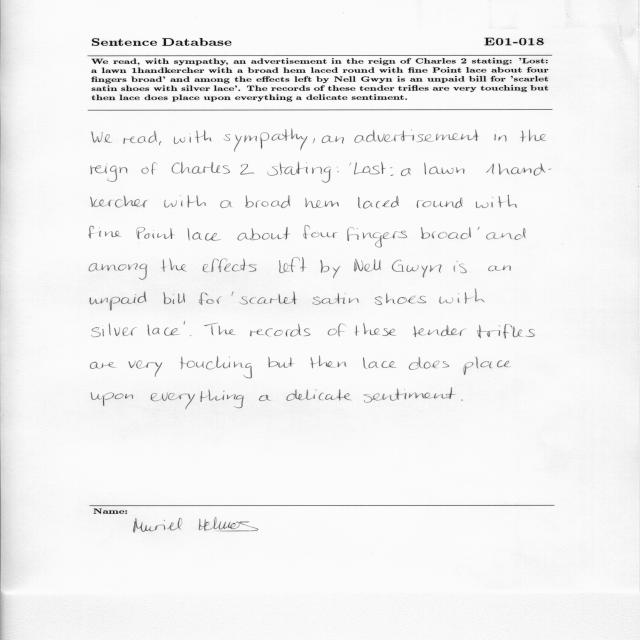 Sentence Database E01-018
We read, with sympathy, an advertisement in the reign of Charles 2 stating: 'Lost:
a lawn 1handkercher with a broad hem laced round with fine Point lace about four
fingers broad' and among the effects left by Nell Gwyn is an unpaid bill for 'scarlet
satin shoes with silver lace'. The records of these tender trifles are very touching but
then lace does place upon everything a delicate sentiment.
We read, with sympathy, an advertisement in the
reign of Charles 2 stating: 'Lost: a lawn 1hand-
kercher with a broad hem laced round with
fine Point lace about four fingers broad' and
among the effects left by Nell Gwyn is an
unpaid bill for 'scarlet satin shoes with
silver lace'. The records of these tender trifles
are very touching but then lace does place
upon everything a delicate sentiment.
Name:
Muriel